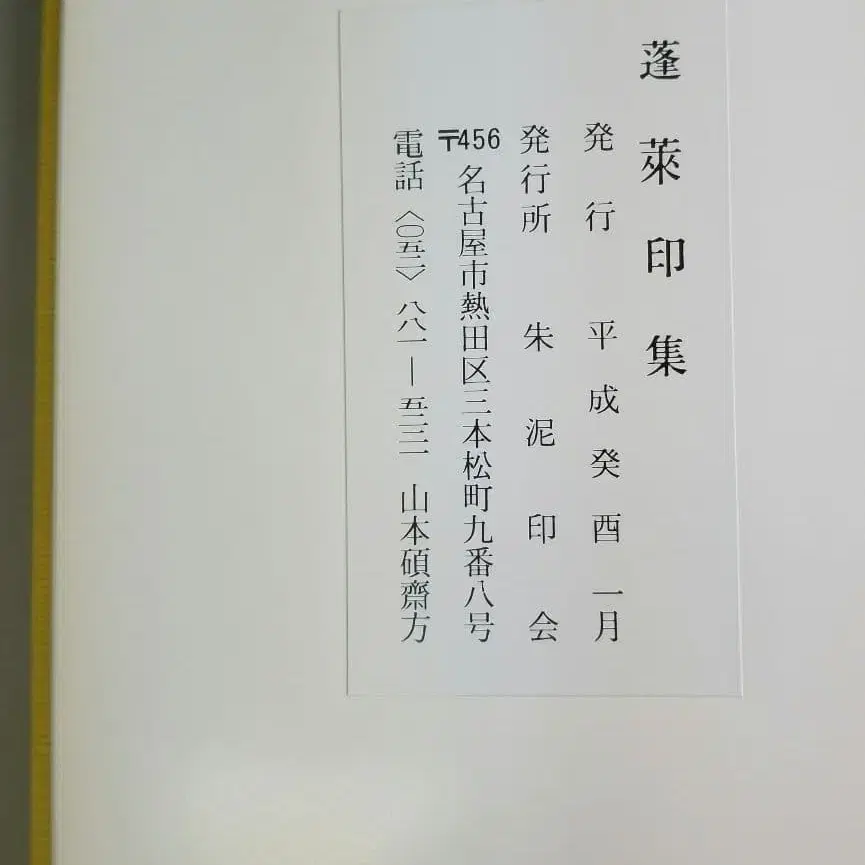 蓬萊印集
発行 平成癸酉一月
発行所 朱泥印会
〒456 名古屋市熱田区三本松町九番八号
電話〈〇五二〉八八一―五三三一 山本碩齋方